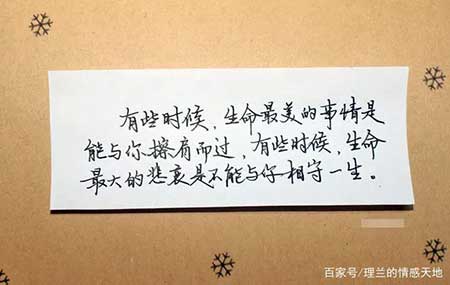 有些时候，生命最美的事情是
能与你擦肩而过，有些时候，生命
最大的悲哀是不能与你相守一生。
百家号/理兰的情感天地